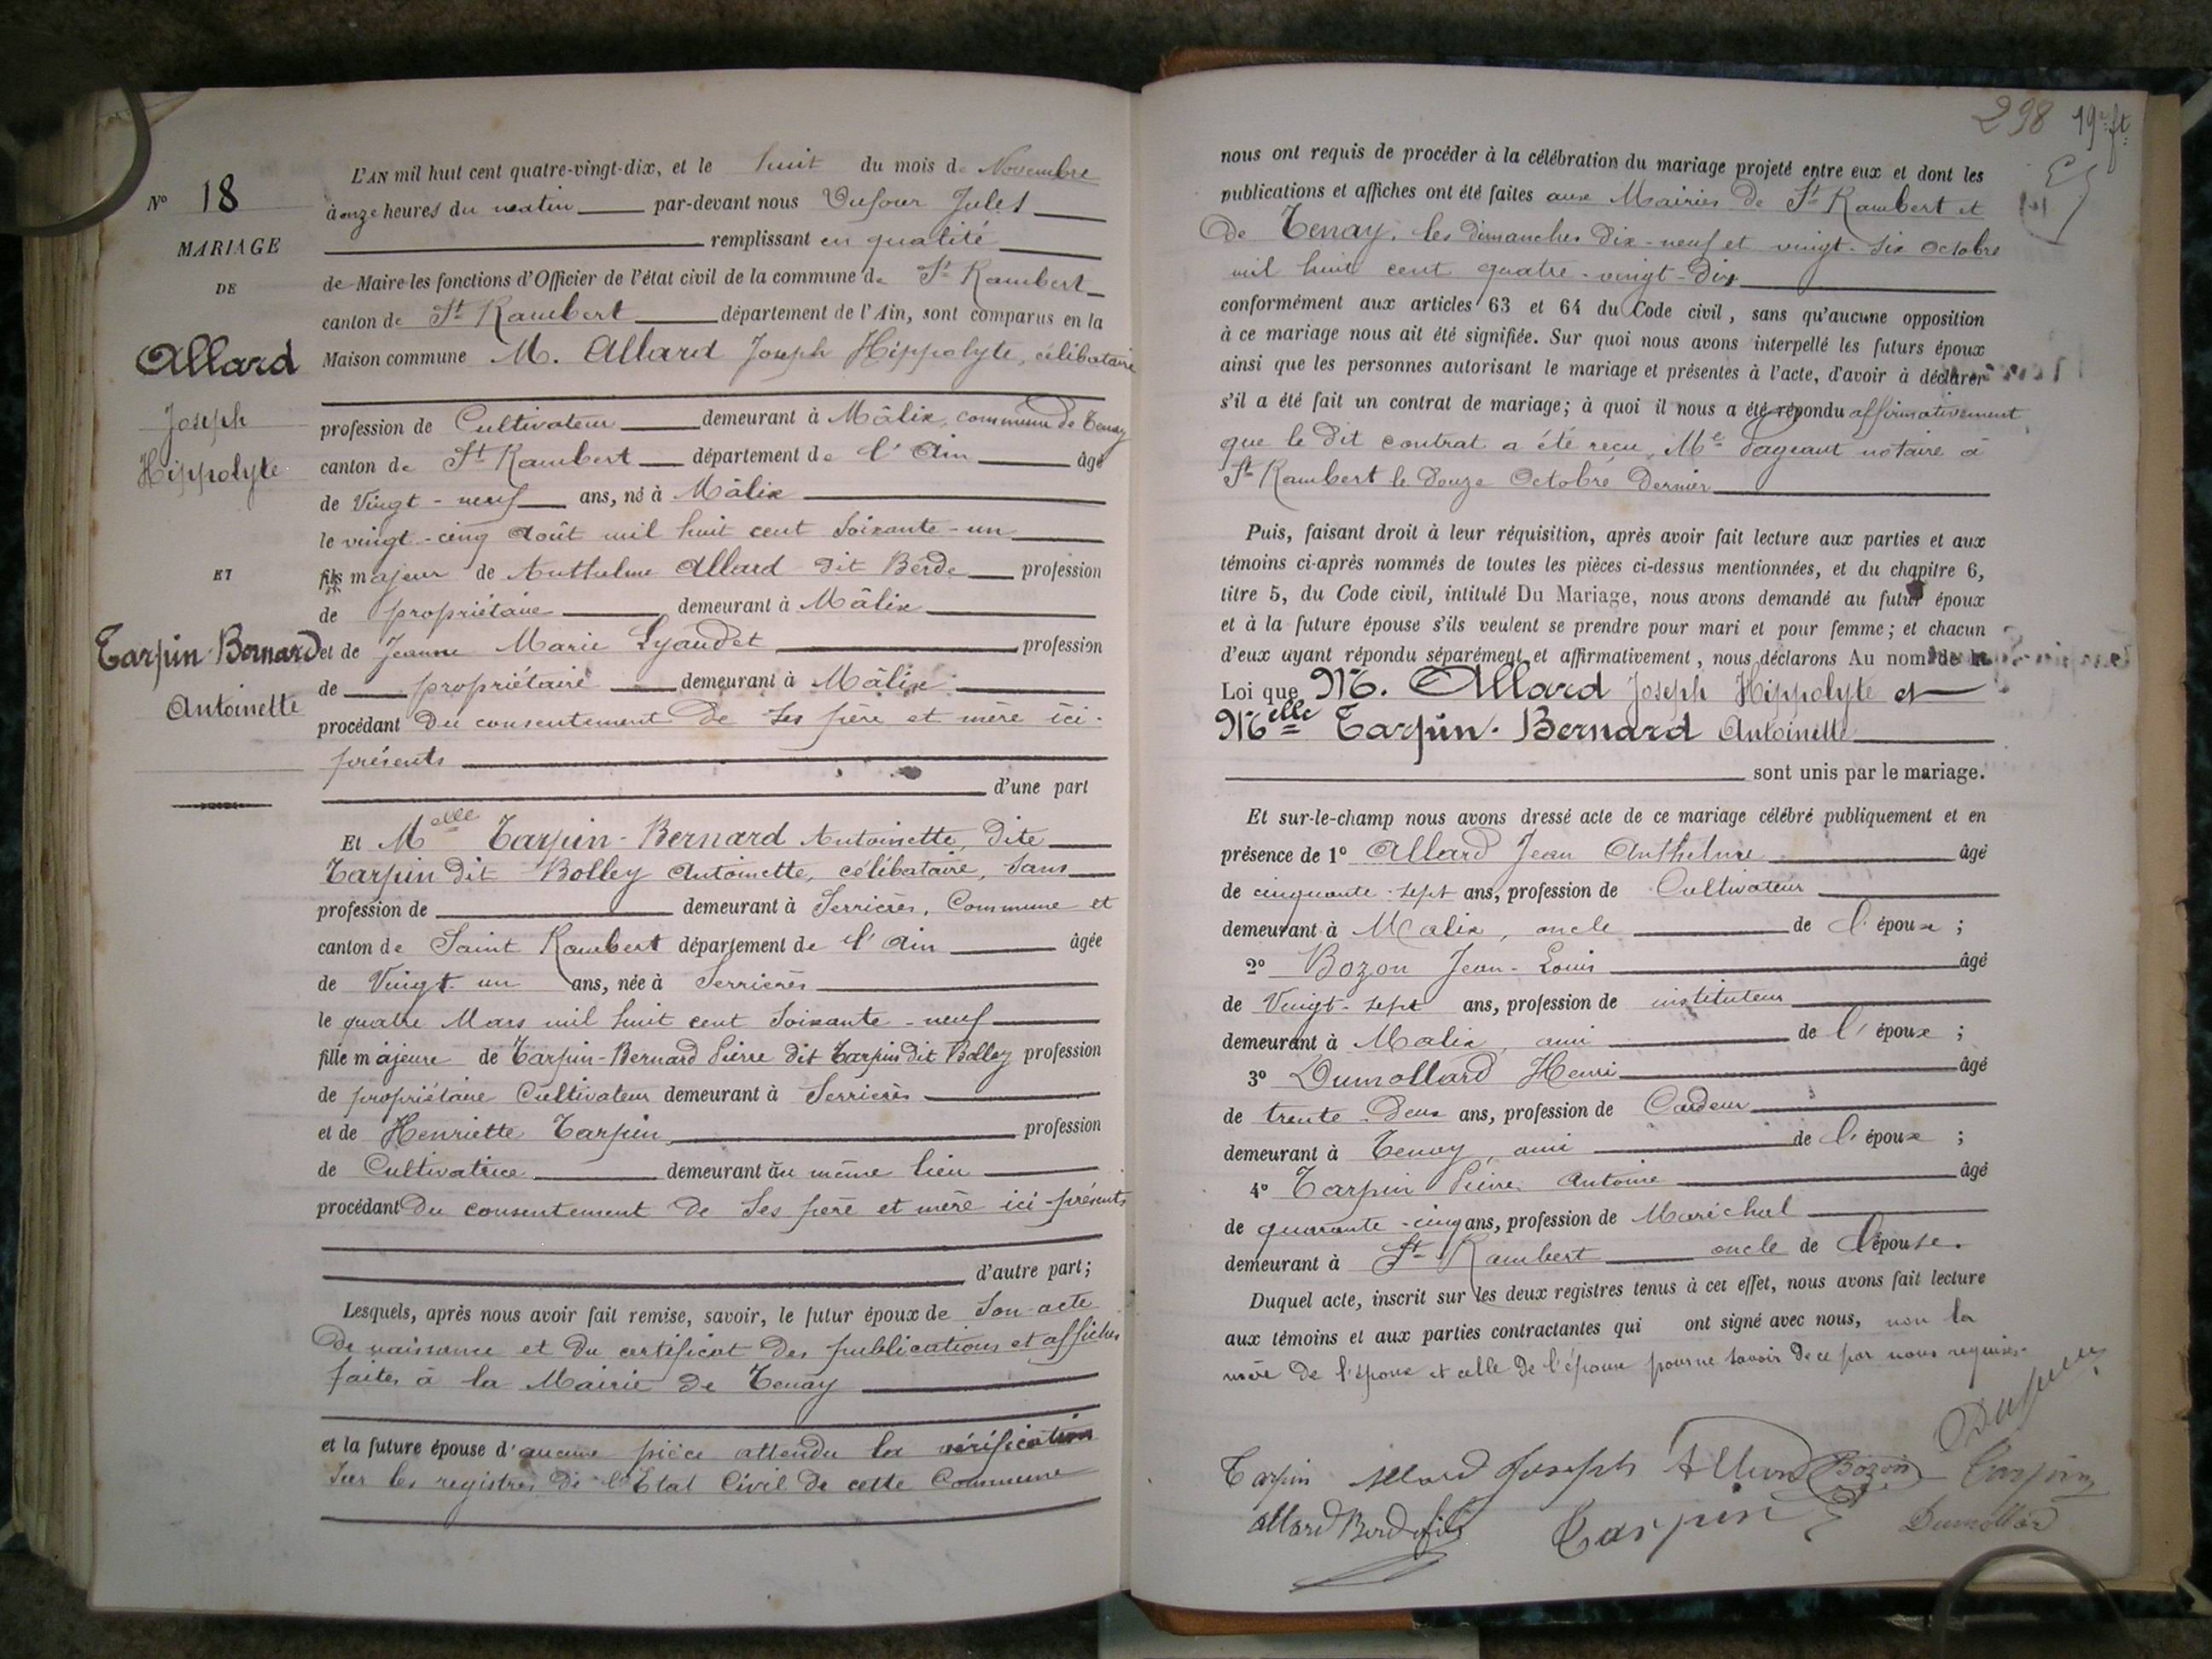 N° 18
MARIAGE
DE
Allard
Joseph
Hippolyte
ET
Tarpin-Bernard
Antoinette
L'AN mil huit cent quatre-vingt-dix, et le huit du mois de Novembre
à onze heures du matin par-devant nous Dufour Jules
remplissant en qualité
de Maire les fonctions d'Officier de l'état civil de la commune de St Rambert
canton de St Rambert département de l'Ain, sont comparus en la
Maison commune M. Allard Joseph Hippolyte, célibataire
profession de Cultivateur demeurant à Mâlix, commune de Tenay
canton de St Rambert département de l'Ain âgé
de Vingt-neuf ans, né à Mâlix
le vingt-cinq Août mil huit cent soixante-un
fils majeur de Anthelme Allard dit Bérde profession
de propriétaire demeurant à Mâlix
et de Jeanne Marie Lyaudet profession
de propriétaire demeurant à Mâlix
procédant du consentement de ses père et mère ici-
présents
d'une part
Et Melle Tarpin-Bernard Antoinette, dite
Tarpin dit Bolley Antoinette, célibataire, sans
profession de demeurant à Serrières, Commune et
canton de Saint Rambert département de l'Ain âgée
de Vingt-un ans, née à Serrières
le quatre Mars mil huit cent soixante-neuf
fille majeure de Tarpin-Bernard Pierre dit Tarpin dit Bolley profession
de propriétaire Cultivateur demeurant à Serrières
et de Henriette Tarpin profession
de Cultivatrice demeurant au même lieu
procédant du consentement de ses père et mère ici-présents
d'autre part;
Lesquels, après nous avoir fait remise, savoir, le futur époux de son acte
de naissance et du certificat des publications et affiches
faites à la Mairie de Tenay
et la future épouse d'aucune pièce attendu la vérification
sur les registres de l'Etat Civil de cette Commune
298 19e ft
nous ont requis de procéder à la célébration du mariage projeté entre eux et dont les
publications et affiches ont été faites aux Mairies de St Rambert et
de Tenay, les dimanches dix-neuf et vingt-six Octobre
mil huit cent quatre-vingt-dix
conformément aux articles 63 et 64 du Code civil, sans qu'aucune opposition
à ce mariage nous ait été signifiée. Sur quoi nous avons interpellé les futurs époux
ainsi que les personnes autorisant le mariage et présentes à l'acte, d'avoir à déclarer
s'il a été fait un contrat de mariage; à quoi il nous a été répondu affirmativement,
que le dit contrat a été reçu, Me notaire à
St Rambert le douze Octobre dernier
Puis, faisant droit à leur réquisition, après avoir fait lecture aux parties et aux
témoins ci-après nommés de toutes les pièces ci-dessus mentionnées, et du chapitre 6,
titre 5, du Code civil, intitulé Du Mariage, nous avons demandé au futur époux
et à la future épouse s'ils veulent se prendre pour mari et pour femme; et chacun
d'eux ayant répondu séparément et affirmativement, nous déclarons Au nom de la
Loi que M. Allard Joseph Hippolyte et
Melle Tarpin-Bernard Antoinette
sont unis par le mariage.
Et sur-le-champ nous avons dressé acte de ce mariage célébré publiquement et en
présence de 1° Allard Jean Anthelme âgé
de cinquante-sept ans, profession de Cultivateur
demeurant à Malix, oncle de l'époux;
2° Bozon Jean-Louis âgé
de Vingt-sept ans, profession de instituteur
demeurant à Malix, ami de l'époux;
3° Dumollard Henri âgé
de trente-deux ans, profession de Cardeur
demeurant à Tenay, ami de l'époux;
4° Tarpin Pierre Antoine âgé
de quarante-cinq ans, profession de Maréchal
demeurant à St Rambert oncle de l'épouse.
Duquel acte, inscrit sur les deux registres tenus à cet effet, nous avons fait lecture
aux témoins et aux parties contractantes qui ont signé avec nous, non la
mère de l'époux et celle de l'épouse pour ne savoir de ce par nous requises.
Dufour
Tarpin Allard Joseph Allard Bozon Tarpin
Allard Berde fils Tarpin Dumollard